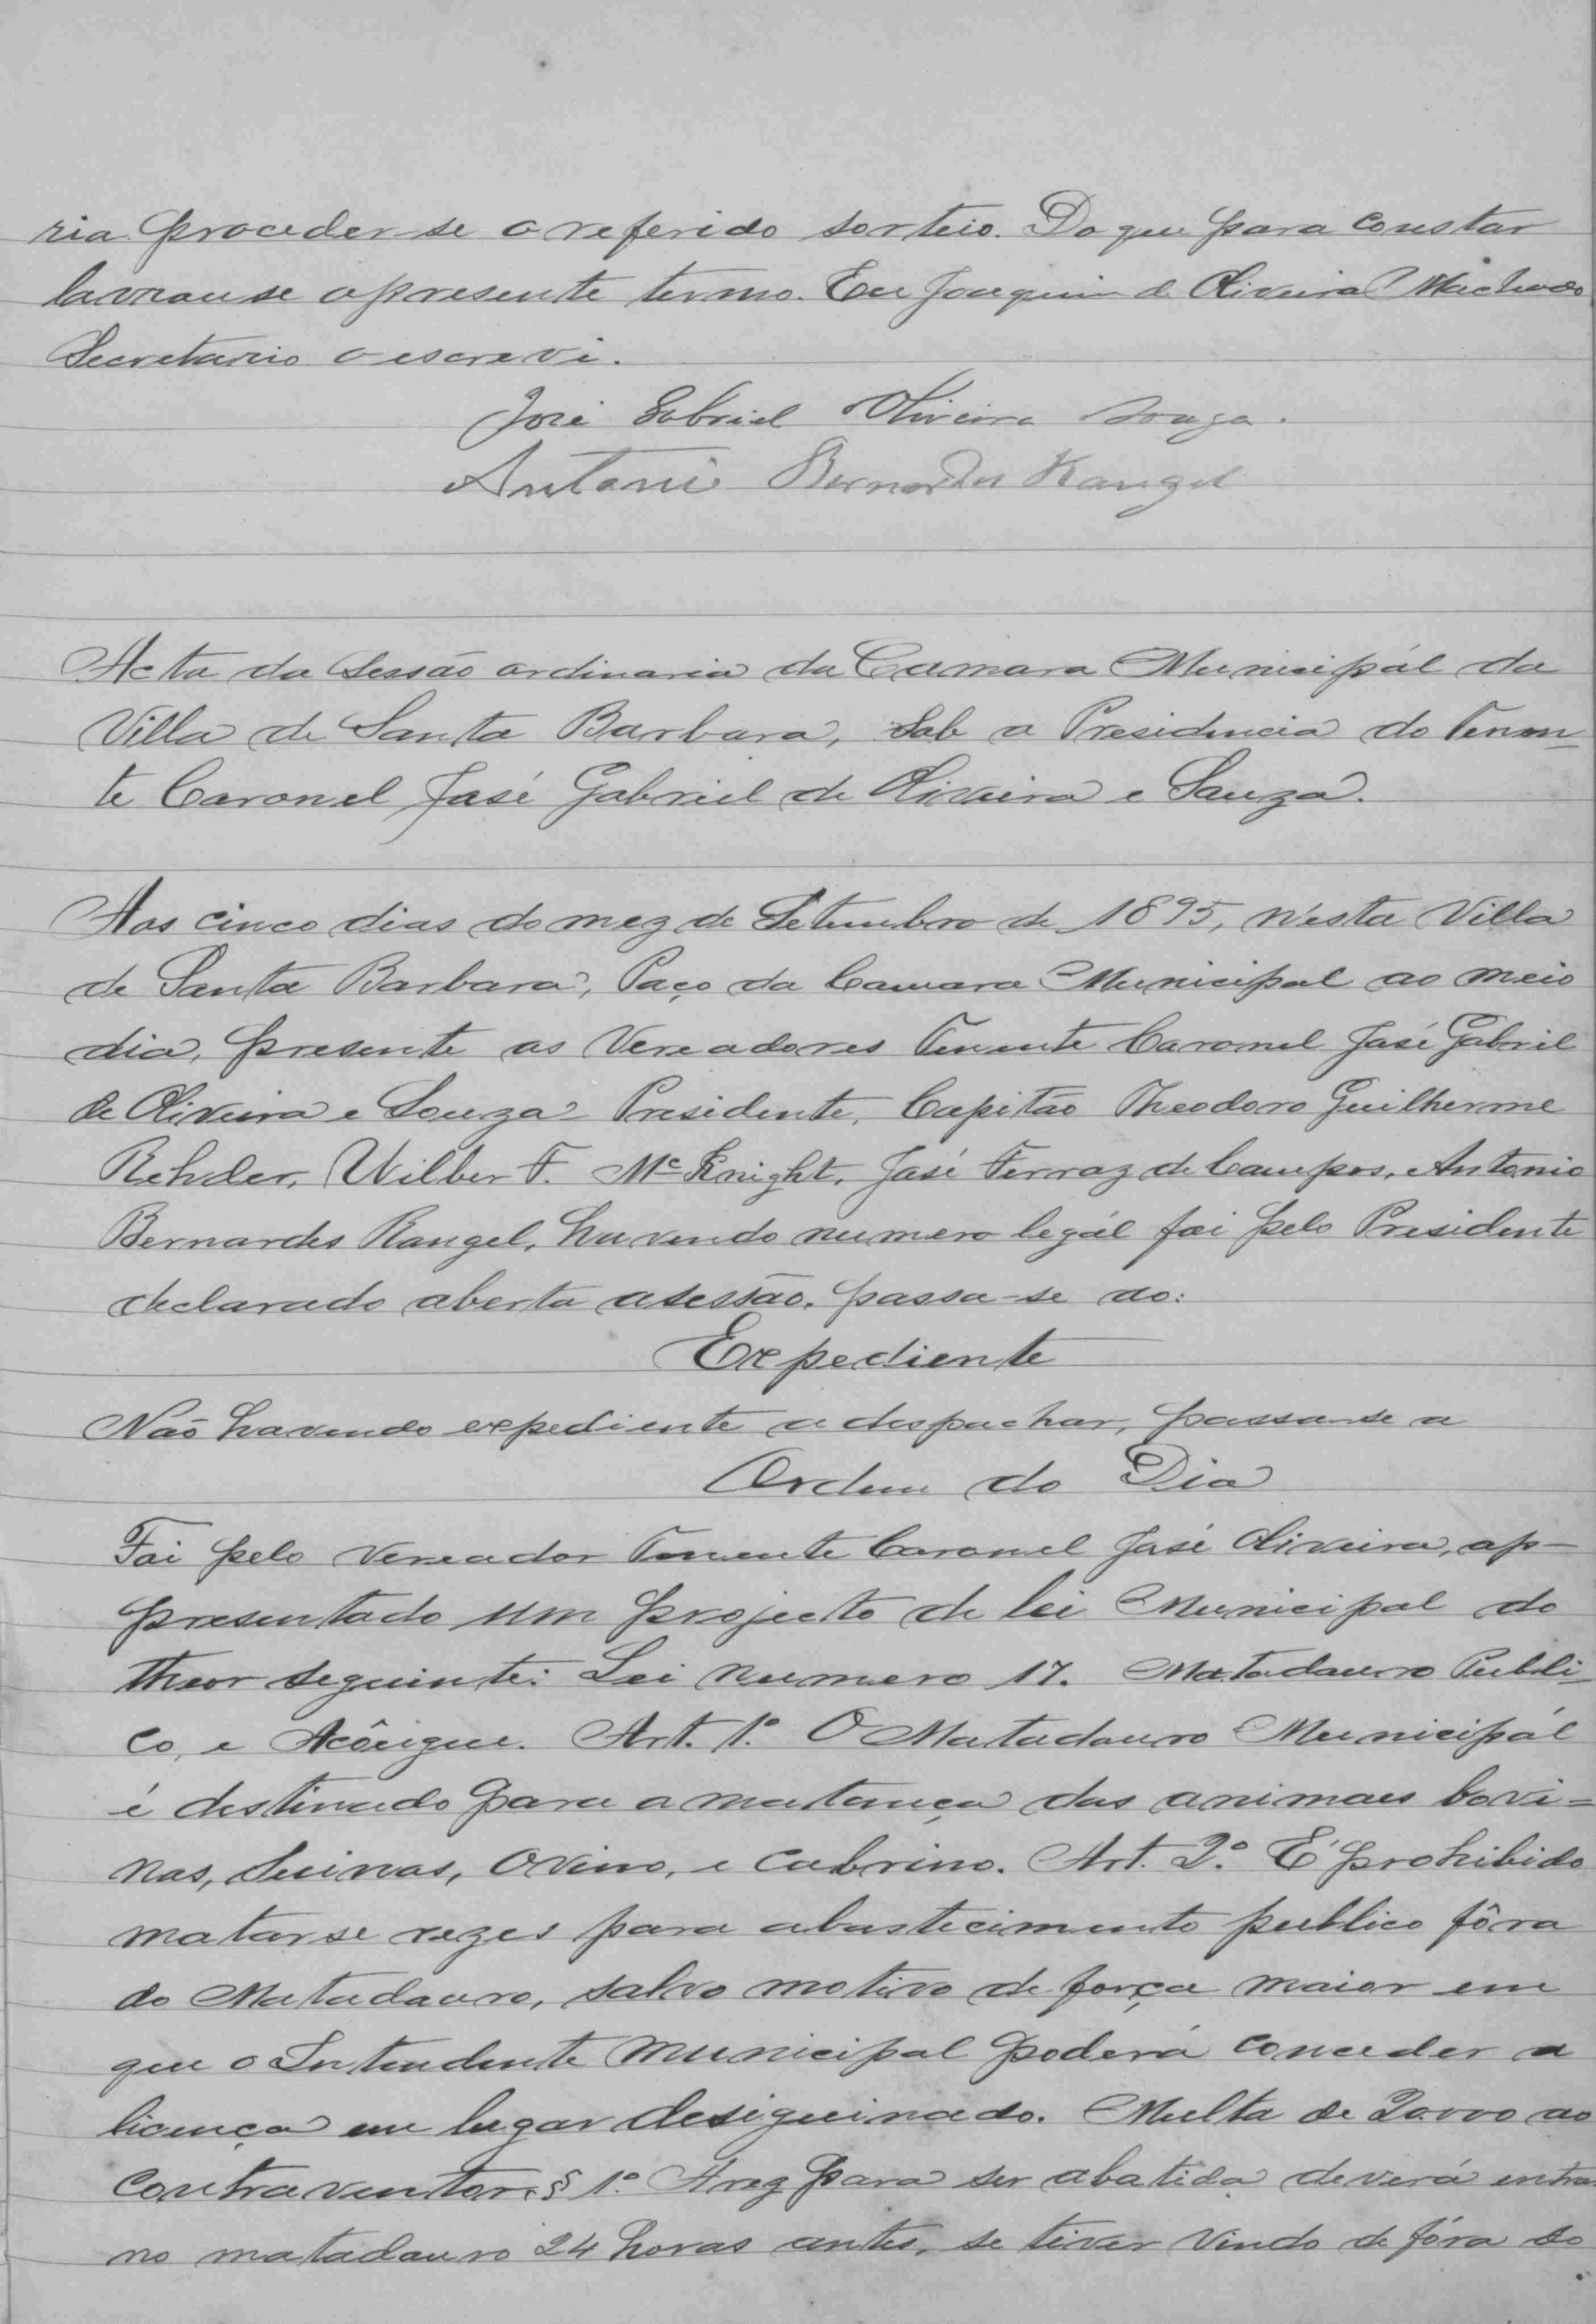 ria proceder-se o referido sorteio. Do que para constar
lavrou se o presente termo. Eu Joaquim de Oliveira Machado
Secretario o escrevi.
José Gabriel Oliveira Souza.
Antonio Bernardes Rangel
Acta da Sessão ordinaria da Camara Municipál da
Villa de Santa Barbara, Sob a Presidencia do Tenen-
te Coronel José Gabriel de Oliveira e Souza.
Aos cinco dias do mez de Setembro de 1895, n'esta Villa
de Santa Barbara, Paço da Camara Municipal ao meio
dia, presente os Vereadores Tenente Coronel José Gabriel
de Oliveira e Souza Presidente, Capitão Theodoro Guilherme
Rehder, Wilber F. Mc Knight, José Ferraz de Campos, Antonio
Bernardes Rangel, havendo numero legál foi pelo Presidente
declarado aberta a sessão, passa-se ao:
Expediente
Não havendo expediente a despachar, passa-se a
Ordem do Dia
Foi pelo Vereador Tenente Coronel José Oliveira, ap-
presentado um projecto de lei Municipal do
theor seguinte: Lei numero 17. Matadouro Publi-
co, e Acôugue. Art. 1º. O Matadouro Municipál
é destinado para a matança dos animaes bovi=
nos, Suinos, Ovino, e Cabrino. Art. 2º. É prohibido
matar se rezes para abastecimento publico fôra
do Matadouro, salvo motivo de força maior em
que o Intendente Municipal poderá conceder a
licença em lugar desiguinado. Multa de 20.000 ao
Contraventor. § 1º. A rez para ser abatida deverá entrar
no matadouro 24 horas antes, se tiver Vindo de fóra do